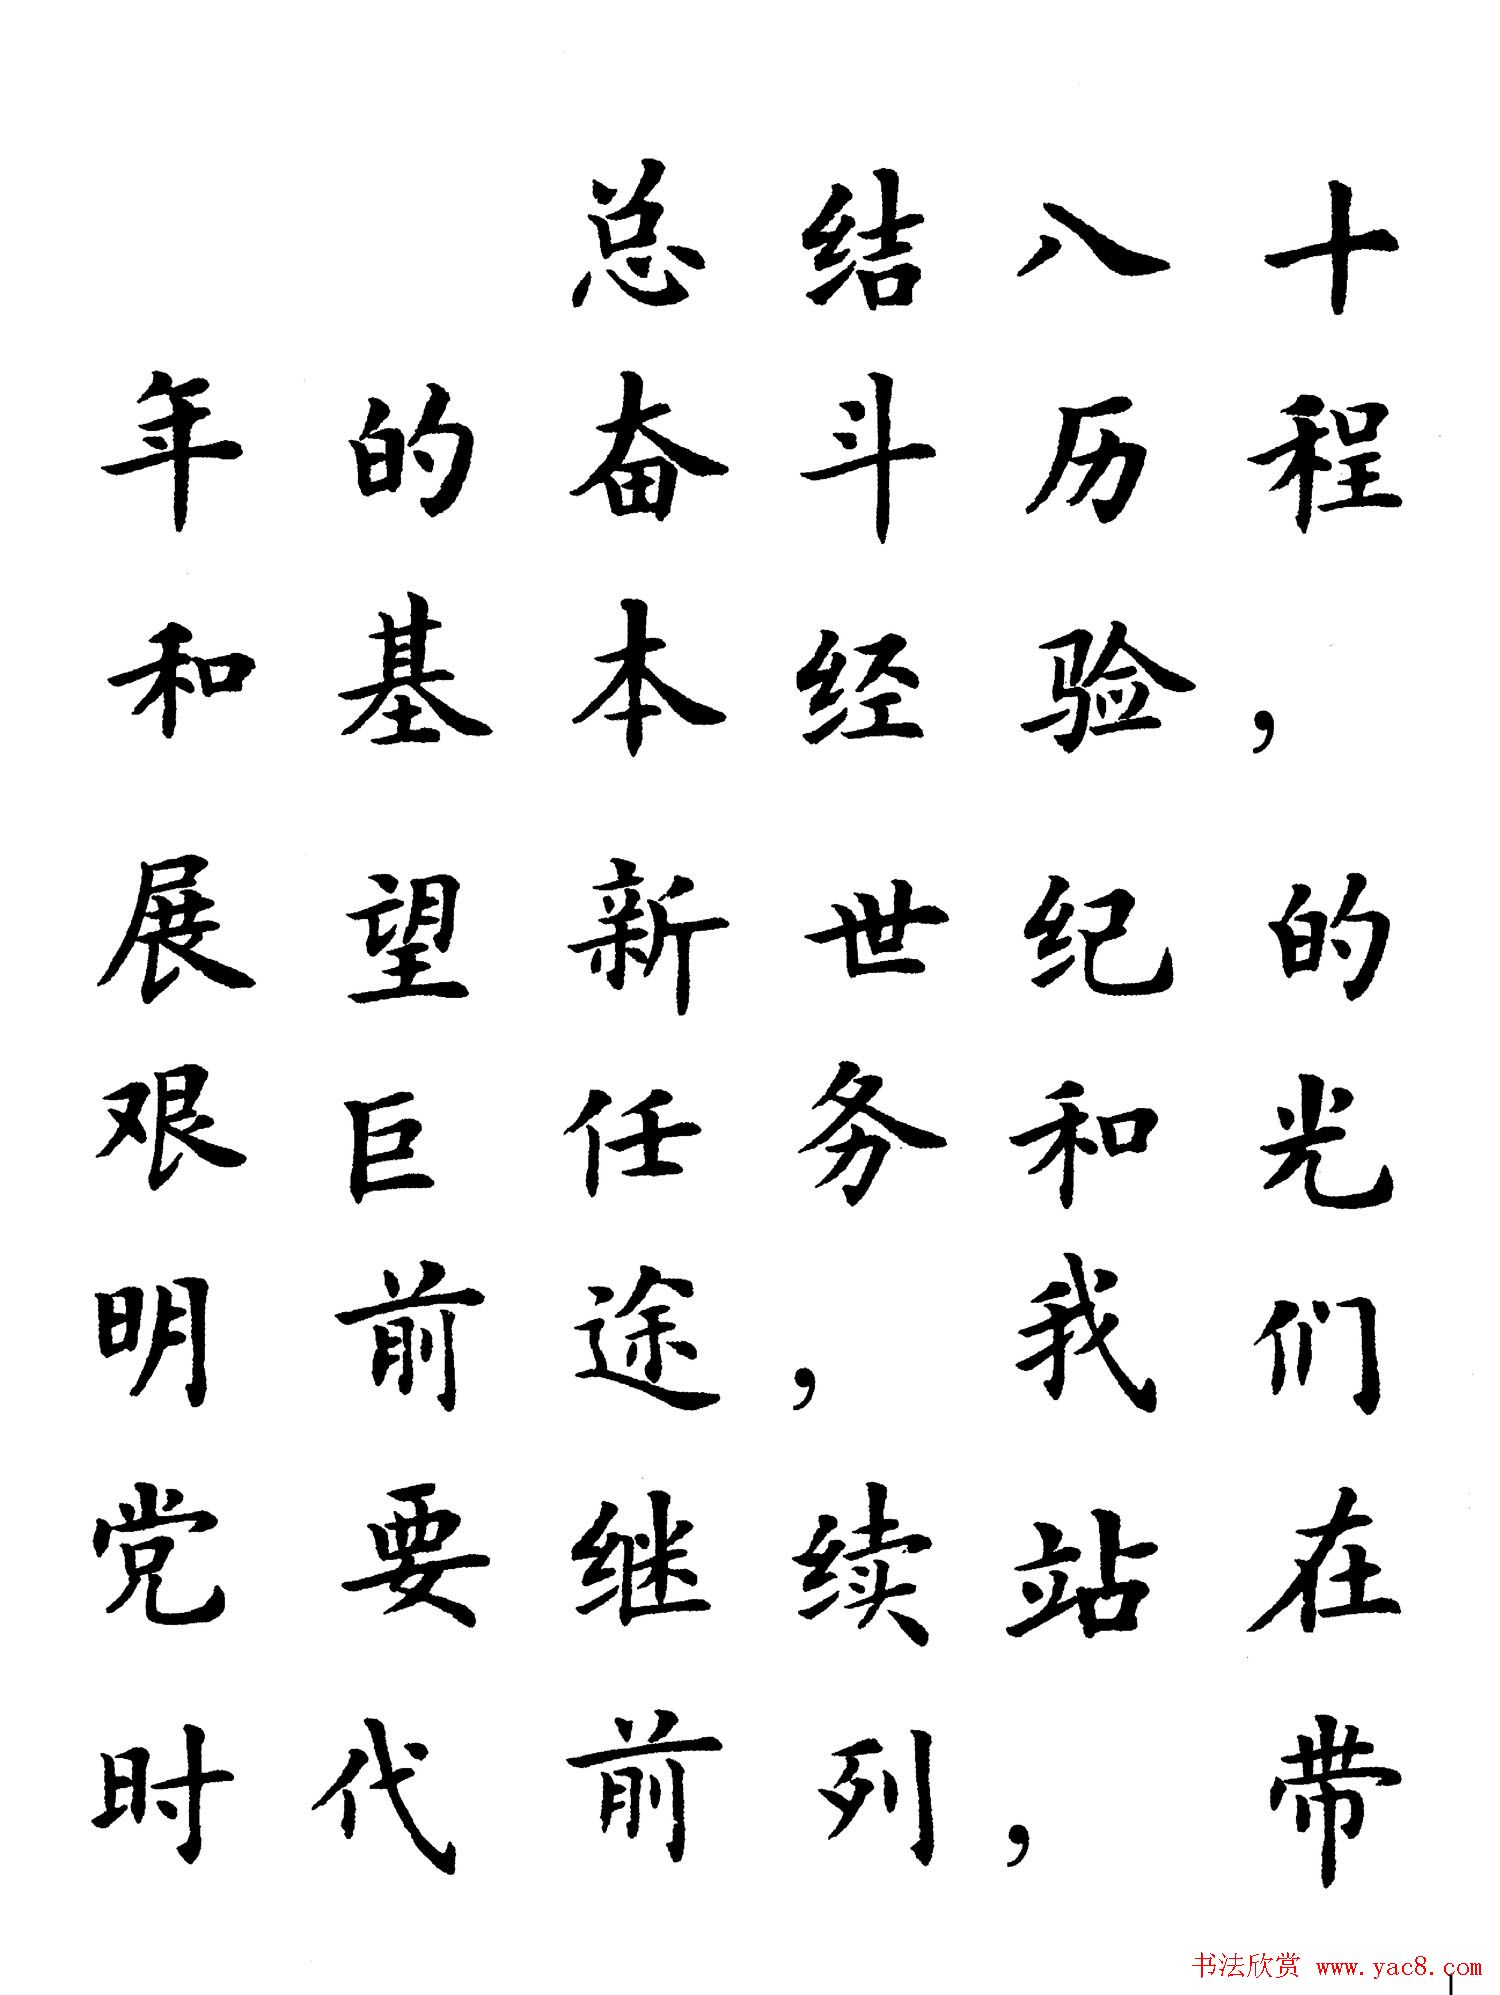 总结八十
年的奋斗历程
和基本经验，
展望新世纪的
艰巨任务和光
明前途，我们
党要继续站在
时代前列，带
书法欣赏 www.yac8.com